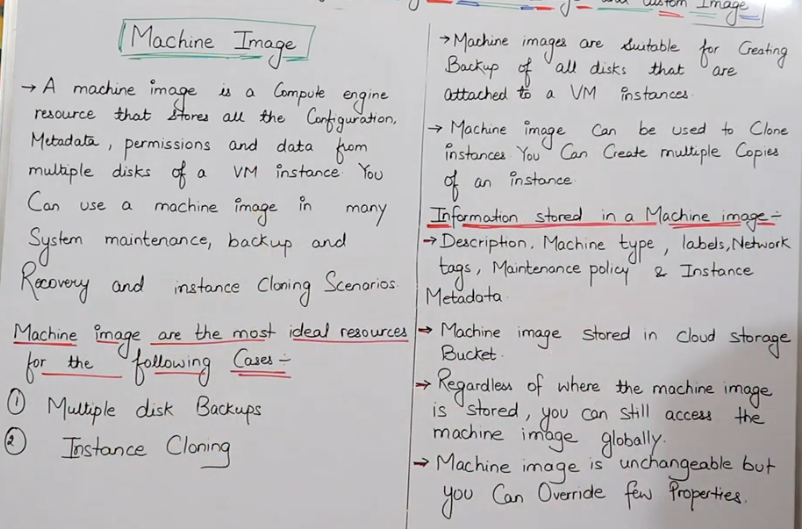 and Custom Image
Machine Image
→ A machine image is a Compute engine
resource that stores all the Configuration,
Metadata, permissions and data from
multiple disks of a VM instance. You
Can use a machine image in many
System maintenance, backup and
Recovery and instance Cloning Scenarios.
Machine image are the most ideal resources
for the following Cases :-
① Multiple disk Backups
② Instance Cloning
→ Machine images are Suitable for Creating
Backup of all disks that are
attached to a VM instances.
→ Machine image Can be used to Clone
instances You Can Create multiple Copies
of an instance.
Information stored in a Machine image :-
→ Description, Machine type, labels, Network
tags, Maintenance policy & Instance
Metadata.
→ Machine image stored in Cloud Storage
Bucket.
→ Regardless of where the machine image
is stored, you can still access the
machine image globally.
→ Machine image is unchangeable but
you Can Override few Properties.